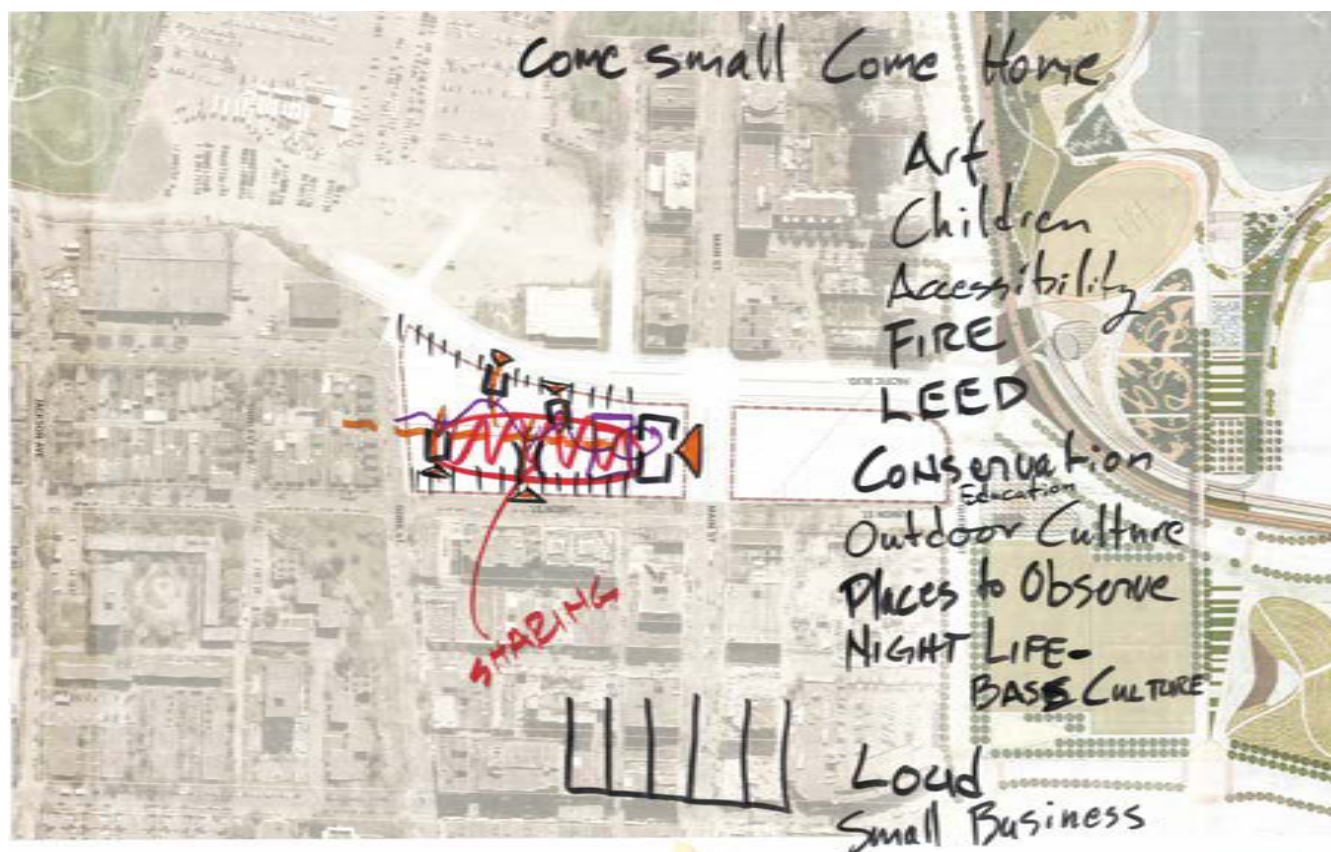 Come small Come Home
Art
Children
Accessibility
FIRE
LEED
Conservation
Education
Outdoor Culture
Places to Observe
NIGHT LIFE-
BASE CULTURE
Loud
Small Business
SHARING
MAIN ST
PACIFIC BLVD.
JACKSON AVE
MAIN ST